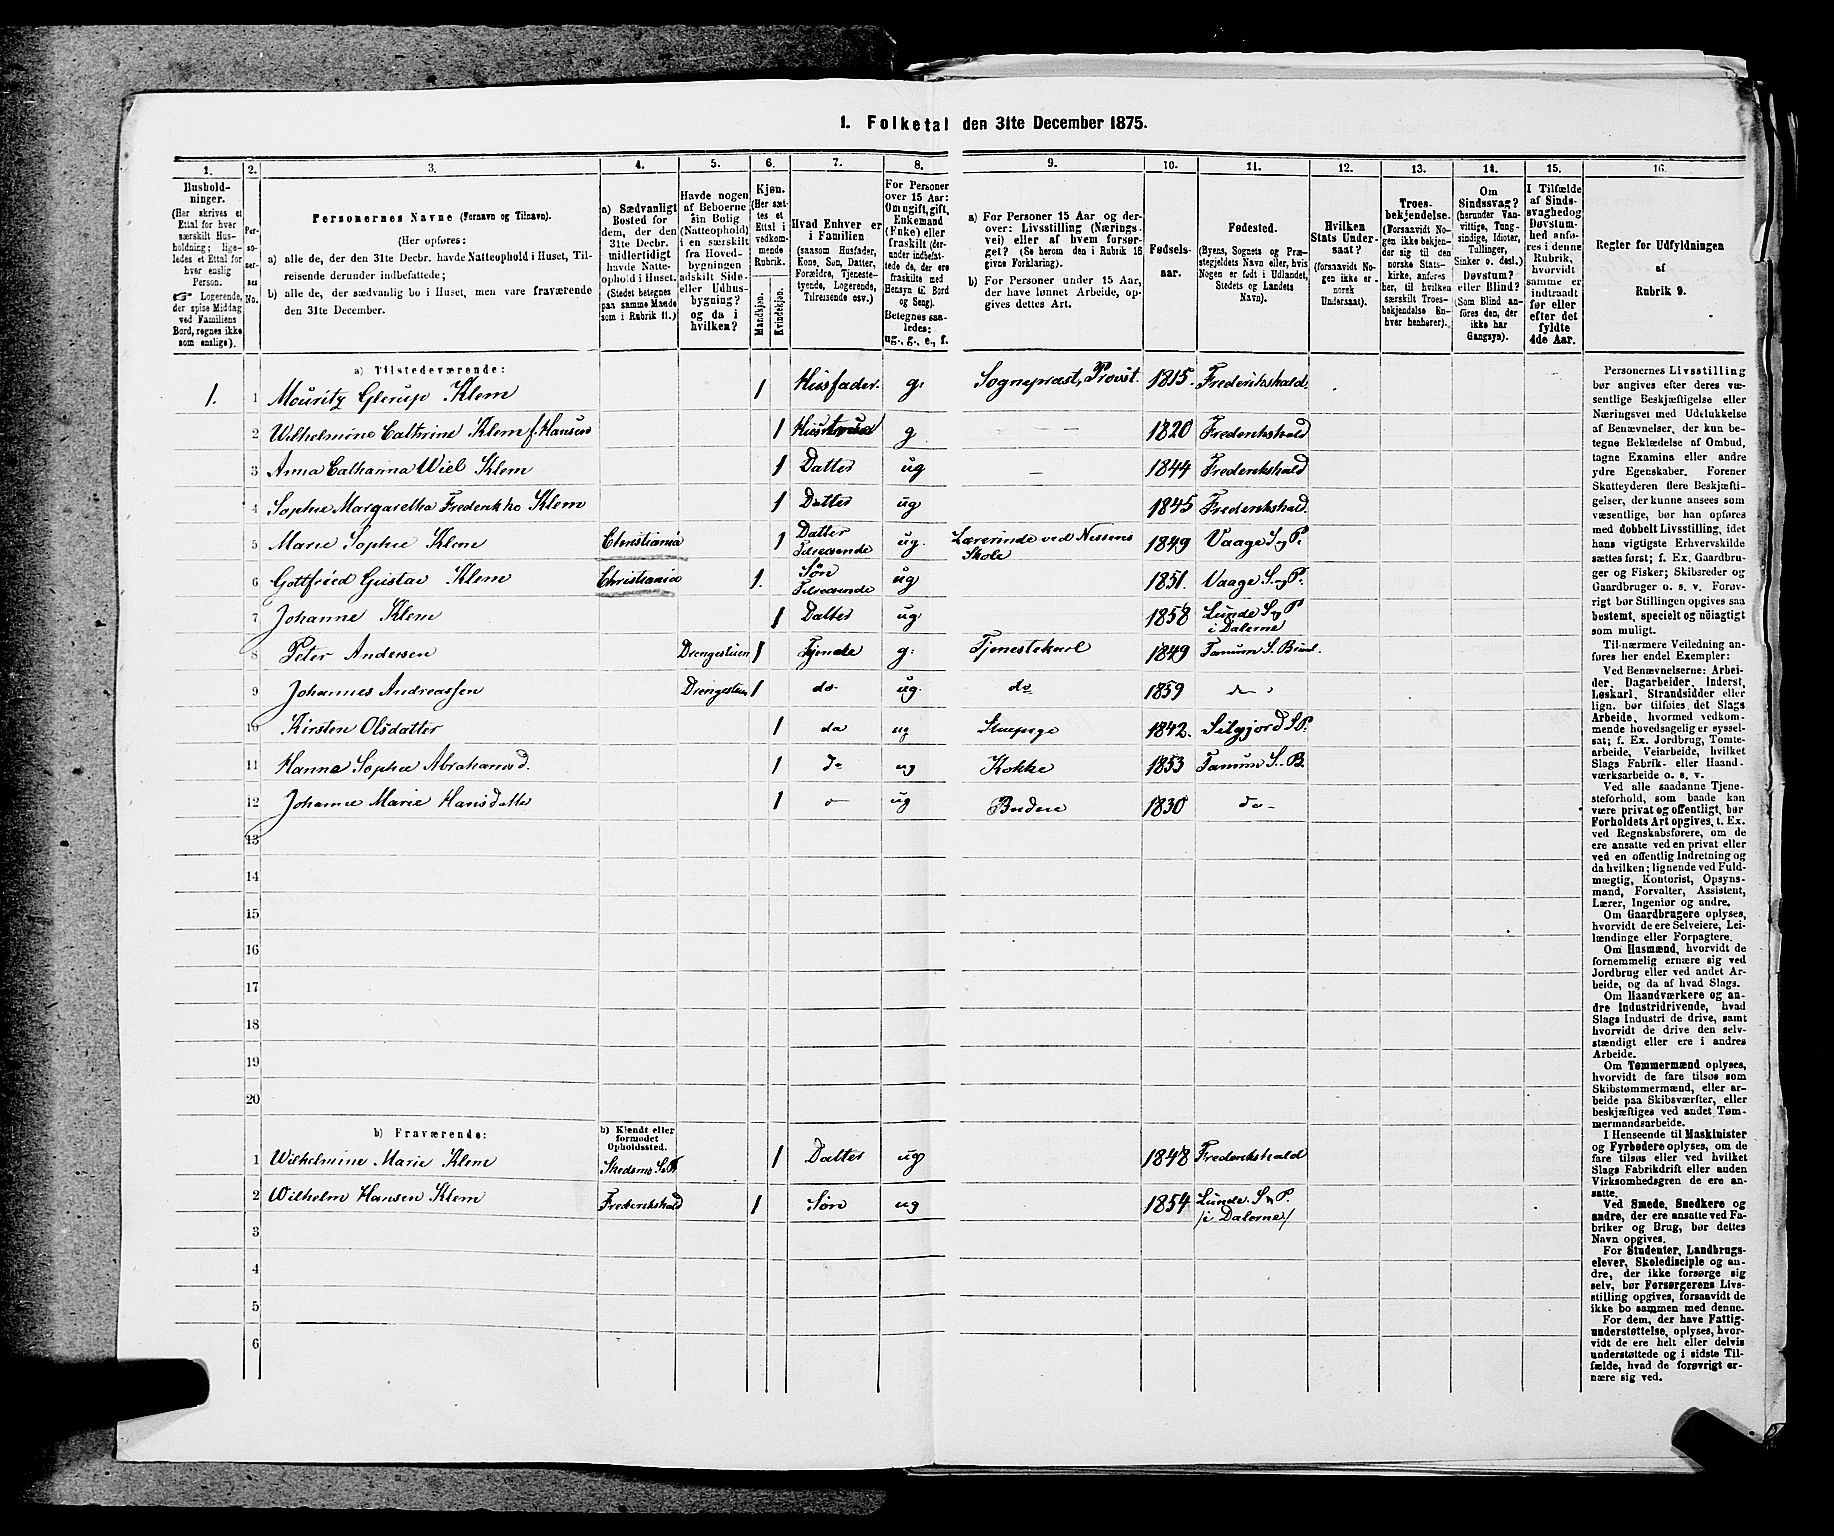 1. Folketal den 31te December 1875.
1. 2. 3. 4. 5. 6. 7. 8. 9. 10. 11. 12. 13. 14. 15. 16.
Hushold-
ninger.
(Her skrives et
Ettal for hver
særskilt Hus-
holdning; lige-
ledes et Ettal for
hver enslig
Person.
☞ Logerende,
der spise Middag
ved Familiens
Bord, regnes ikke
som enslige).
Per-
so-
ner-
nes
No.
Personernes Navne (Fornavn og Tilnavn).
(Her opføres:
a) alle de, der den 31te Decbr. havde Natteophold i Huset, Til-
reisende derunder indbefattede;
b) alle de, der sædvanlig bo i Huset, men vare fraværende
den 31te December.
a) Sædvanligt
Bosted for
dem, der den
31te Decbr.
midlertidigt
havde Natte-
ophold i Huset.
(Stedet betegnes
paa samme Maade
som i Rubrik 11.)
Havde nogen
af Beboerne
sin Bolig
(Natteophold)
i en særskilt
fra Hoved-
bygningen
adskilt Side-
eller Udhus-
bygning?
og da i
hvilken?
Kjøn.
(Her sæt-
tes et
Ettal i
vedkom-
mende
Rubrik.
Mandkjøn.
Kvindekjøn.
Hvad Enhver er
i Familien
(saasom Husfader,
Kone, Søn, Datter,
Forældre, Tjeneste-
tyende, Logerende,
Tilreisende osv.)
For Personer
over 15 Aar:
Om ugift, gift,
Enkemand
(Enke) eller
fraskilt (der-
under indbefat-
tede de, der ere
fraskilte med
Hensyn til Bord
og Seng).
Betegnes saa-
ledes:
ug., g., e., f.
a) For Personer 15 Aar og der-
over: Livsstilling (Nærings-
vei) eller af hvem forsør-
get? (Se herom den i Rubrik 16
givne Forklaring).
b) For Personer under 15 Aar,
der have lønnet Arbeide, op-
gives dettes Art.
Fødsels-
aar.
Fødested.
(Byens, Sognets og Præ-
stegjeldets Navn eller, hvis
Nogen er født i Udlandet,
Stedets og Landets
Navn).
Hvilken
Stats Under-
saat?
(forsaavidt No-
gen ikke er
norsk
Undersaat).
Troes-
bekjendelse.
(Forsaavidt No-
gen ikke bekjen-
der sig til den
norske Stats-
kirke, anføres
her, til hvilken
særskilt Troes-
bekjendelse En-
hver henhører).
Om
Sindssvag?
(herunder Van-
vittige, Tung-
sindige, Idioter,
Tullinger,
Sinker o. desl.)
Døvstum?
eller Blind?
(Som Blind an-
føres den, der
ikke har
Gangsyn).
I Tilfælde
af Sinds-
svaghed og
Døvstum-
hed anfø-
res i denne
Rubrik,
hvorvidt
samme er
indtraadt
før eller
efter det
fyldte
4de Aar.
Regler for Udfyldningen
af
Rubrik 9.
a) Tilstedeværende:
1. 1 Mouritz Glerup Klem 1 Husfader. g. Sognepræst, Provst. 1815. Frederikshald
2 Wilhelmine Cathrine Klem f. Hansen 1 Hustrue g. — 1820 Frederikshald
3 Anna Catharina Wiel Klem 1 Datter ug — 1844 Frederikshald
4 Sophie Margaretha Frederikke Klem 1 Datter ug 1845 Frederikshald.
5 Marie Sophie Klem Christiania 1 Datter Tilreisende ug. Lærerinde ved Nissens Skole 1849 Vaage S. og P.
6 Gottfried Gustav Klem Christiania 1. Søn Tilreisende ug 1851. Vaage S. og P.
7 Johanne Klem 1 Datter ug 1858 Lunde S og P i Dalerne
8 Peter Andersen Drengestuen 1 Tjende g. Tjenestekarl 1849 Tanum S.
9 Johannes Andreassen Drengestuen 1 do ug. do 1859 do
10 Kirsten Olsdatter 1 do ug Stuepige 1842. Silgjord S P.
11 Hanne Sophie Abrahamsd. 1 do ug Kokke 1853 Tanum S. B.
12 Johanne Marie Hansdatter 1 ug Budeie 1830 do
13
14
15
16
17
18
19
20
b) Fraværende:
b) Kjendt eller
formodet
Opholdssted.
1 Wilhelmine Marie Klem Skedsmo S. P. 1 Datter ug 1848 Frederikshald
2 Wilhelm Hansen Klem Frederikshald 1 Søn ug 1854 Lunde. S og P. /i Dalerne/
3
4
5
6
Personernes Livsstilling
bør angives efter deres væ-
sentlige Beskjæftigelse eller
Næringsvei med Udelukkelse
af Benævnelser, der kun be-
tegne Beklædelse af Ombud,
tagne Examina eller andre
ydre Egenskaber. Forener
Skatteyderen flere Beskjæfti-
gelser, der kunne ansees som
væsentlige, bør han opføres
med dobbelt Livsstilling, idet
hans vigtigste Erhvervskilde
sættes først; f. Ex. Gaardbru-
ger og Fisker; Skibsreder og
Gaardbruger o. s. v. Forøv-
rigt bør Stillingen opgives saa
bestemt, specielt og nöiagtigt
som muligt.
Til nærmere Veiledning an-
føres her endel Exempler:
Ved Benævnelserne: Arbei-
der, Dagarbeider, Inderst,
Løskarl, Strandsidder eller
lign. bør tilføies det Slags
Arbeide, hvormed vedkom-
mende hovedsagelig er syssel-
sat; f. Ex. Jordbrug, Tomte-
arbeide, Veiarbeide, hvilket
Slags Fabrik- eller Haand-
værksarbeide o. s. v.
Ved alle saadanne Tjene-
steforhold, som baade kan
være privat og offentligt, bør
Forholdets Art opgives, t. Ex.
ved Regnskabsførere, om de
ere ansatte ved en privat eller
ved en offentlig Indretning og
da hvilken; lignende ved Fuld-
mægtig, Kontorist, Opsyns-
mand, Forvalter, Assistent,
Lærer, Ingeniør og andre.
Om Gaardbrugere oplyses,
hvorvidt de ere Selveiere, Lei-
lændinge eller Forpagtere.
Om Husmænd, hvorvidt de
fornemmelig ernære sig ved
Jordbrug eller ved andet Ar-
beide, og da af hvad Slags.
Om Haandværkere og an-
dre Industridrivende, hvad
Slags Industri de drive, samt
hvorvidt de drive den selv-
stændigt eller ere i andres
Arbeide.
Om Tømmermænd oplyses,
hvorvidt de fare tilsøs som
Skibstømmermænd, eller ar-
beide paa Skibsværfter, eller
beskjæftiges ved andet Tøm-
mermandsarbeide.
I Henseende til Maskinister
og Fyrbødere oplyses, om de
fare tilsøs eller ved hvilket
Slags Fabrikdrift eller anden
Virksomhedsgren de ere an-
satte.
Ved Smede, Snedkere og
andre, der ere ansatte ved Fa-
briker og Brug, bør dettes
Navn opgives.
For Studenter, Landbrugs-
elever, Skoledisciple og an-
dre, der ikke forsørge sig
selv, bør Forsørgerens Livs-
stilling opgives, forsaavidt de
ikke bo sammen med denne.
For dem, der have Fattig-
understøttelse, oplyses, hvor-
vidt de ere helt eller delvis
understøttede og i sidste Til-
fælde, hvad de forøvrigt er-
nære sig ved.